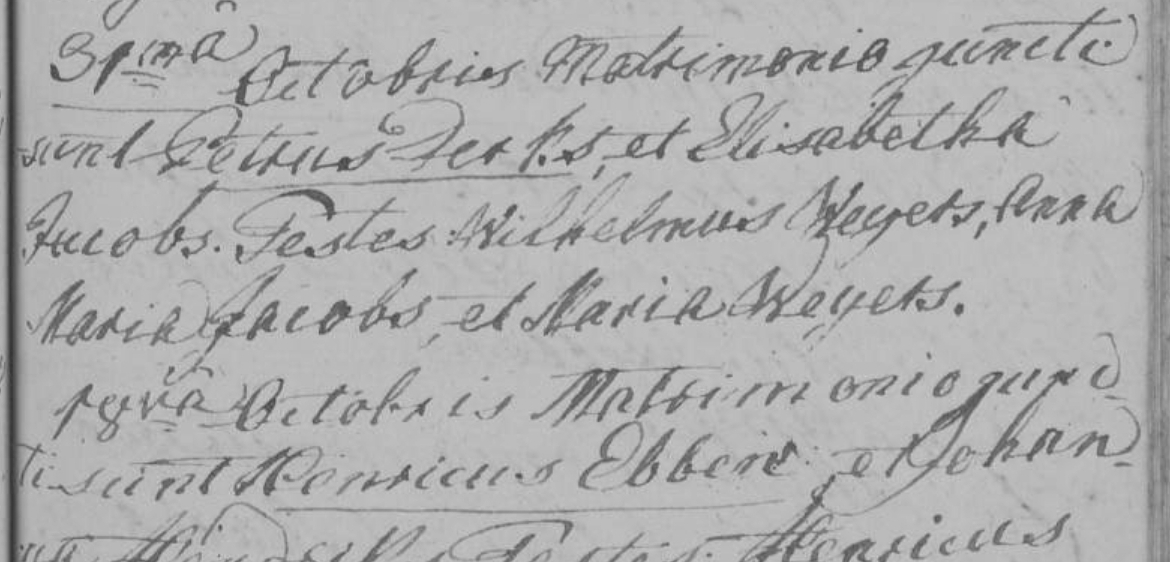 31mâ Octobris Matrimonio juncti
sunt Petrus Derks, et Elisabetha
Jacobs. Testes Wilhelmus Weyers, Anna
Maria Jacobs, et Maria Weyers.
18vâ Octobris Matrimonio junc-
ti sunt Henricus Ebben et Johan-
na Testes Henricus